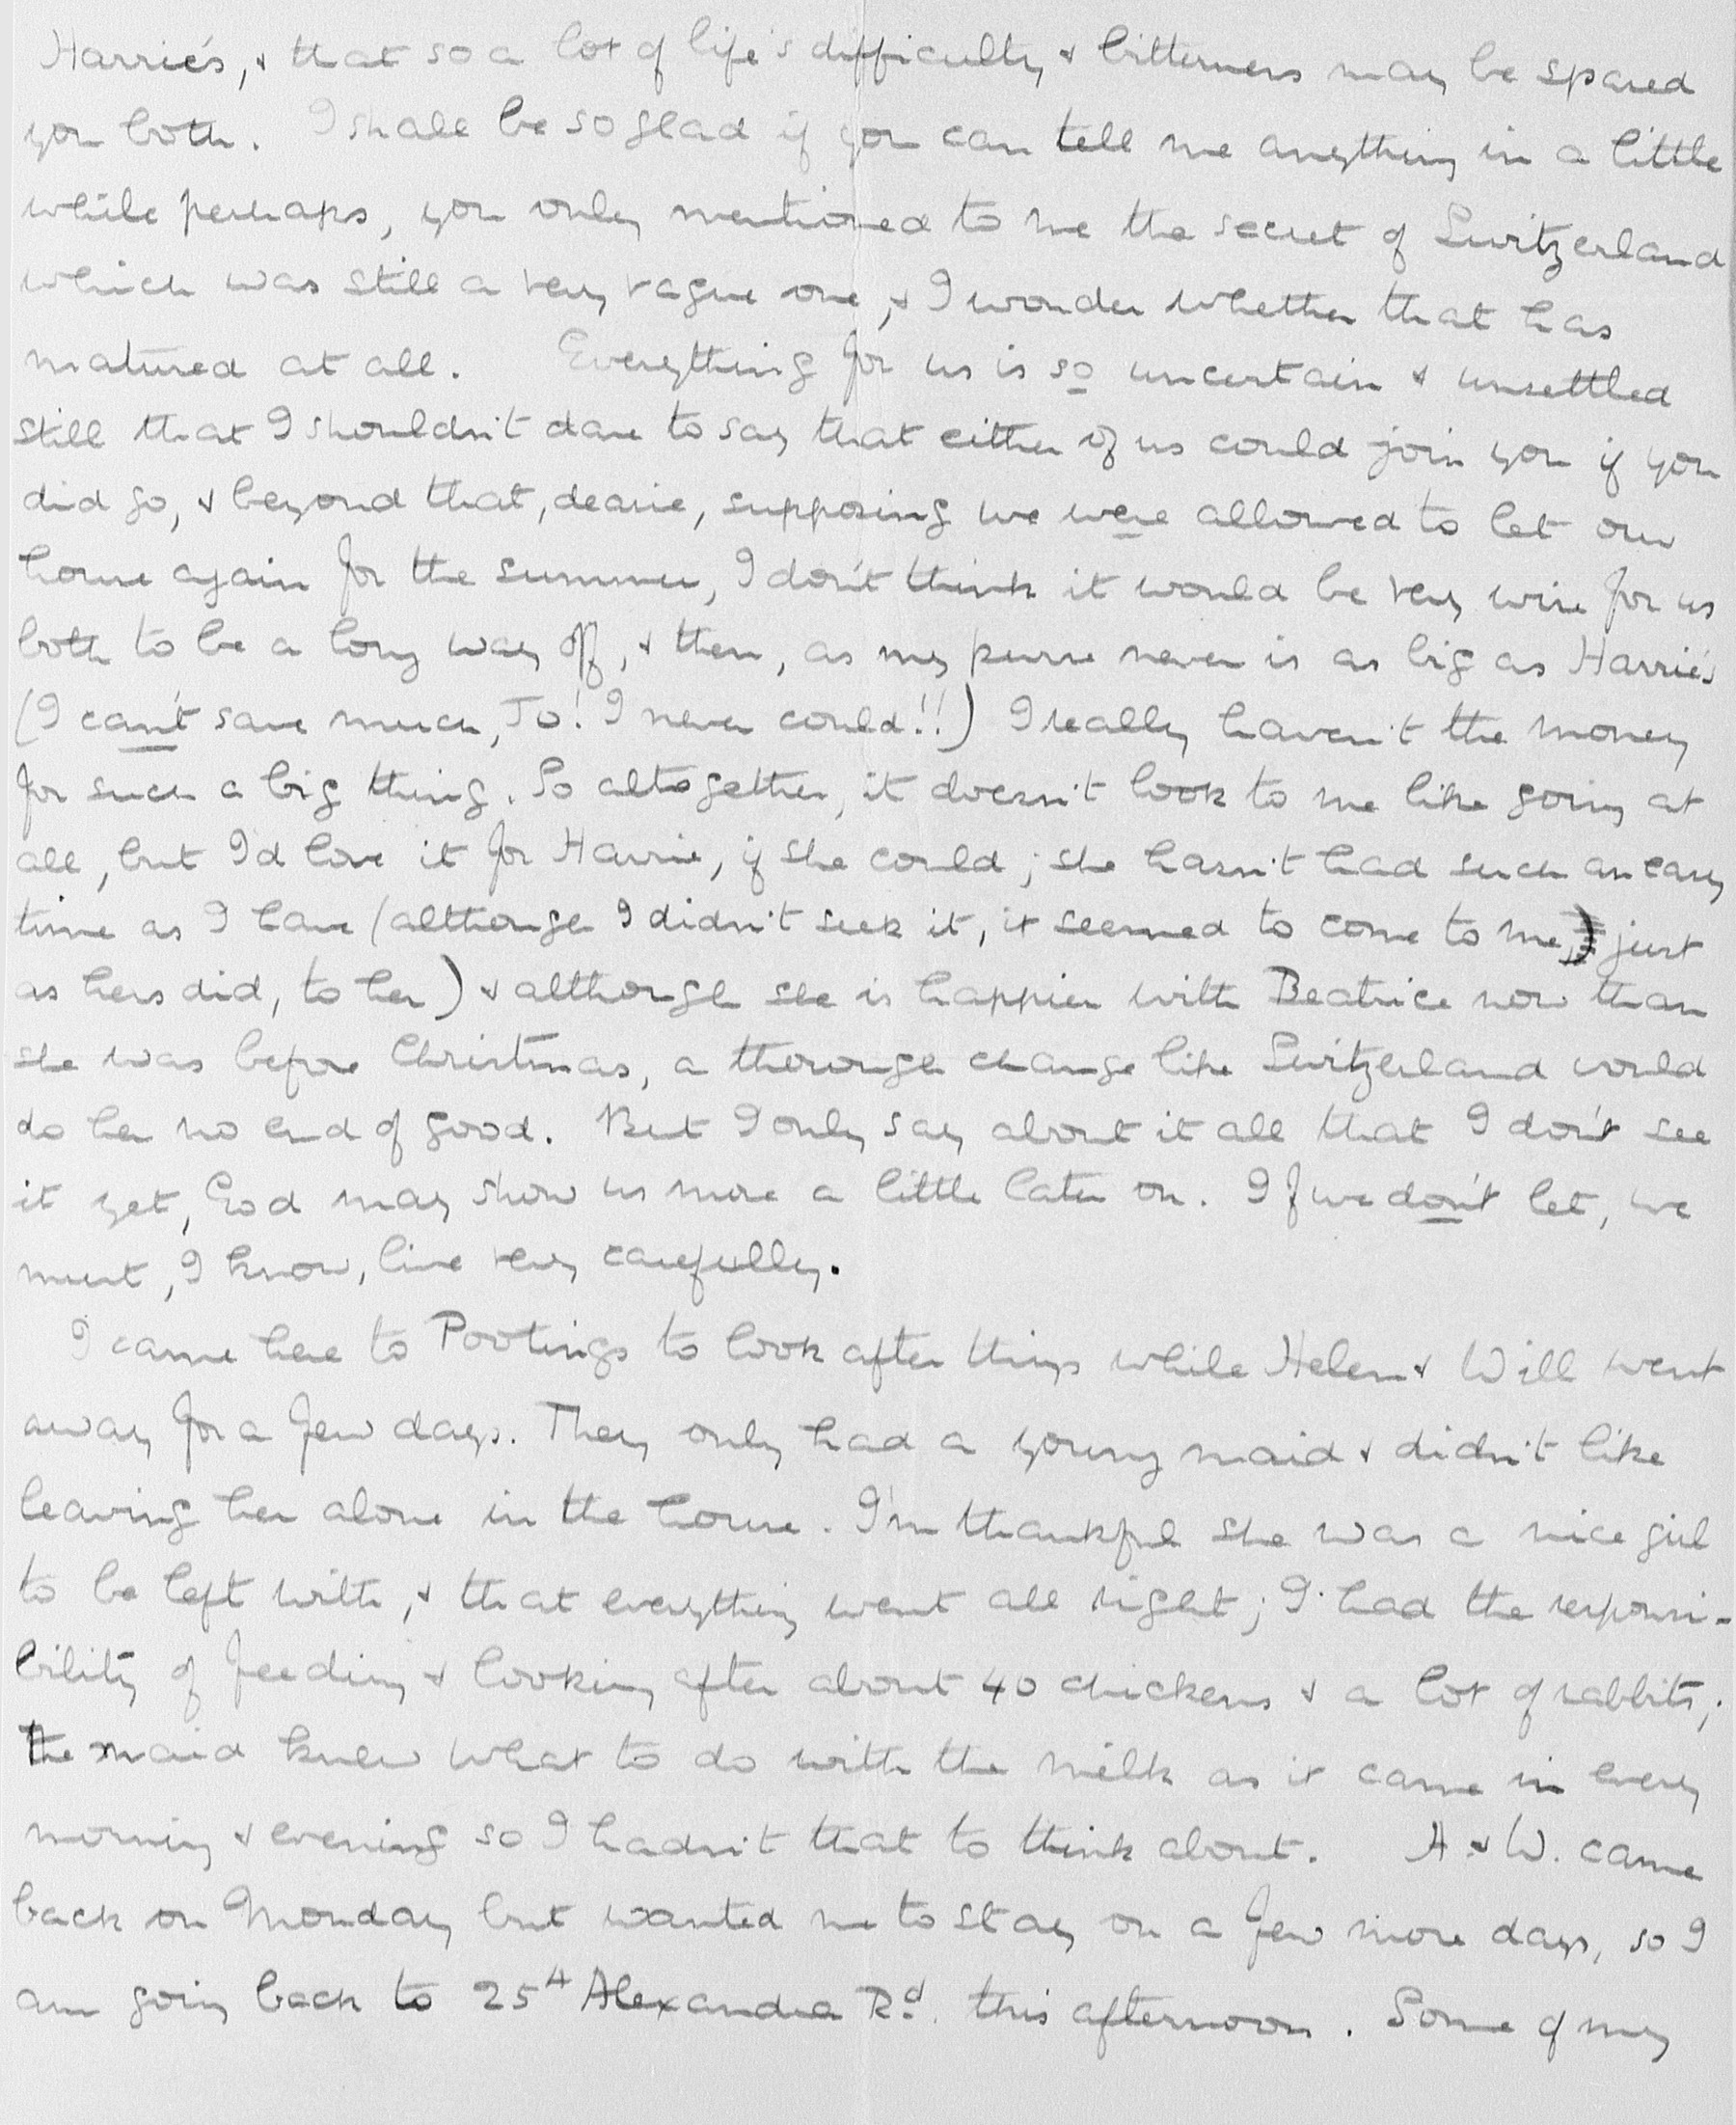 Harrie's, & that so a lot of life's difficulty & bitterness may be spared
you both. I shall be so glad if you can tell me anything in a little
while perhaps, you only mentioned to me the secret of Switzerland
which was still a very vague one, & I wonder whether that has
matured at all. Everything for us is so uncertain & unsettled
still that I shouldn't dare to say that either of us could join you if you
did go, & beyond that, dearie, supposing we were allowed to let our
house again for the summer, I don't think it would be very wise for us
both to be a long way off, & then, as my purse never is as big as Harrie's
(I can't save much, Jo! I never could!!) I really haven't the money
for such a big thing. So altogether, it doesn't look to me like going at
all, but I'd love it for Harrie, if she could; she hasn't had such an easy
time as I have (although I didn't seek it, it seemed to come to me, just
as hers did, to her) & although she is happier with Beatrice now than
she was before Christmas, a thorough change like Switzerland would
do her no end of good. But I only say about it all that I don't see
it yet, God may show us more a little later on. If we don't let, we
must, I know, live very carefully.
I came here to Pootings to look after things while Helen & Will went
away for a few days. They only had a young maid & didn't like
leaving her alone in the house. I'm thankful she was a nice girl
to be left with, & that everything went all right; I had the responsi-
bility of feeding & looking after about 40 chickens & a lot of rabbits;
the maid knew what to do with the milk as it came in every
morning & evening so I hadn't that to think about. H & W. came
back on Monday but wanted me to stay on a few more days, so I
am going back to 25A Alexandra Rd. this afternoon. Some of my